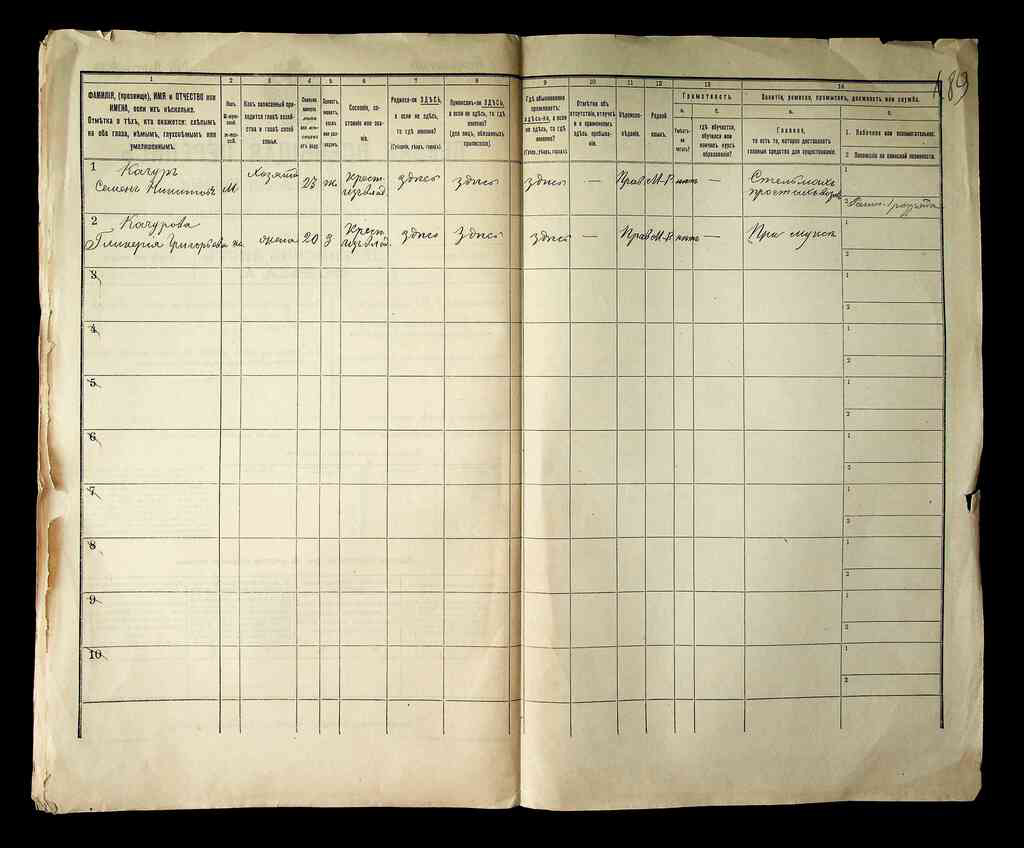 489
1 2 3 4 5 6 7 8 9 10 11 12 13 14
ФАМИЛІЯ, (прозвище), ИМЯ и ОТЧЕСТВО или
ИМЕНА, если ихъ нѣсколько.
Отмѣтка о тѣхъ, кто окажется: слѣпымъ
на оба глаза, нѣмымъ, глухонѣмымъ или
умалишеннымъ.
Полъ.
Какъ записанный при-
ходится главѣ хозяй-
ства и главѣ своей
семьи.
Сословіе, со-
стояніе или зва-
ніе.
Родился-ли ЗДѢСЬ,
а если не здѣсь,
то гдѣ именно?
(Губернія, уѣздъ, городъ).
Приписанъ-ли ЗДѢСЬ,
а если не здѣсь, то гдѣ
именно?
(для лицъ, обязанныхъ
припискою).
Гдѣ обыкновенно
проживаетъ:
здѣсь-ли, а если
не здѣсь, то гдѣ
именно?
(Губ., уѣздъ, городъ).
Отмѣтка объ
отсутствіи, отлучкѣ
и о временномъ
здѣсь пребыва-
ніи.
Вѣроиспо-
вѣданіе.
Родной
языкъ.
Грамотность.
а.
Умѣетъ-
ли
читать?
б.
гдѣ обучается,
обучался или
кончилъ курсъ
образованія?
Занятіе, ремесло, промыселъ, должность или служба.
а.
Главное,
то есть то, которое доставляетъ
главныя средства для существованія.
б.
1. Побочное или вспомогательное.
2. Положеніе по воинской повинности.
1 Качуръ
Семенъ Никитовъ М Хозяинъ 27 ж Крест. здѣсь здѣсь здѣсь — Прав М-Р нѣтъ — Стельмахъ 1
2
2 Качурова
Гликерія Григорьева ж жена 20 З Крест. здѣсь здѣсь здѣсь — Прав М-Р нѣтъ — При мужѣ 1
2
3 1
2
4 1
2
5 1
2
6 1
2
7 1
2
8 1
2
9 1
2
10 1
2